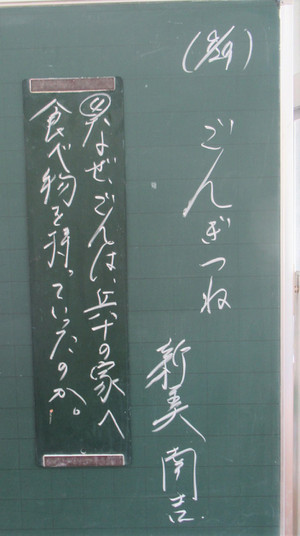 ごんぎつね
新美南吉
なぜ、ごんは、兵十の家へ
食べ物を持っていったのか。